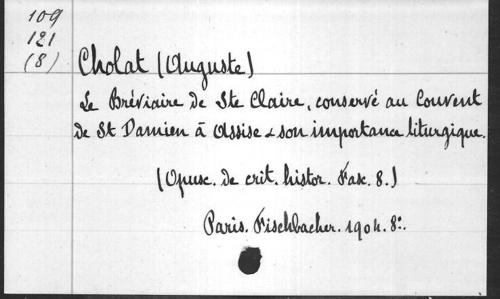 109
121
(8)
Cholat (Auguste)
Le Bréviaire de Ste Claire, conservé au Couvent
de St Damien à Assise & son importance liturgique.
(Opusc. de crit. histor. Fasc. 8.)
Paris. Fischbacher. 1904. 8º.